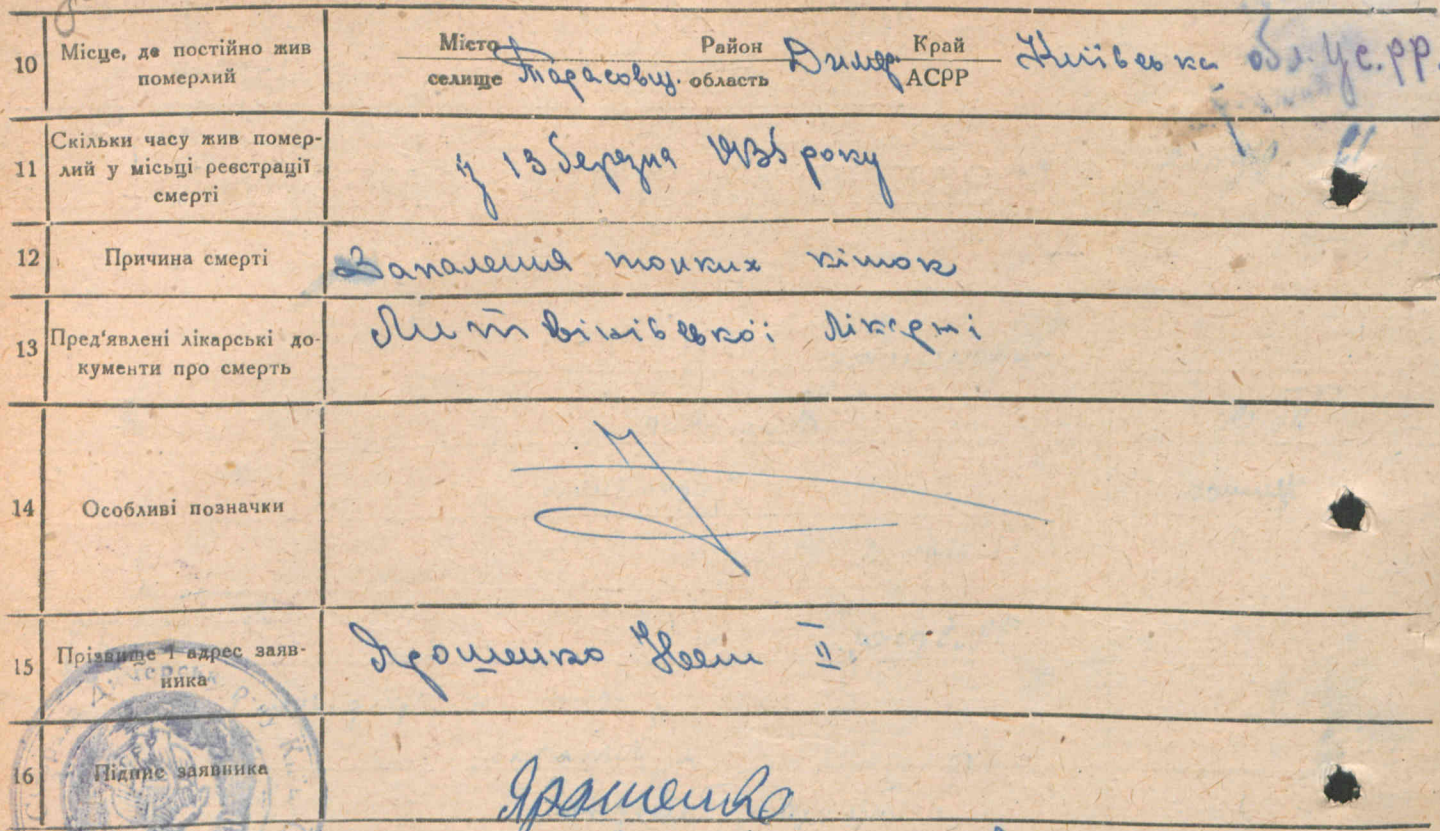 10 Місце, де постійно жив Місто Район Край
померлий селище Тарасовщ. область Димер. АСРР Київська обл. УС.РР.
11 Скільки часу жив помер-
лий у місьці реєстрації
смерті
з 13 березня 1935 року
12 Причина смерті Запалення тонких кішок
13 Пред'явлені лікарські до-
кументи про смерть
Литвинівської лікарні
14 Особливі позначки
15 Прізвище і адрес заяв-
ника
Ярошенко II
16 Підпис заявника Ярошенко